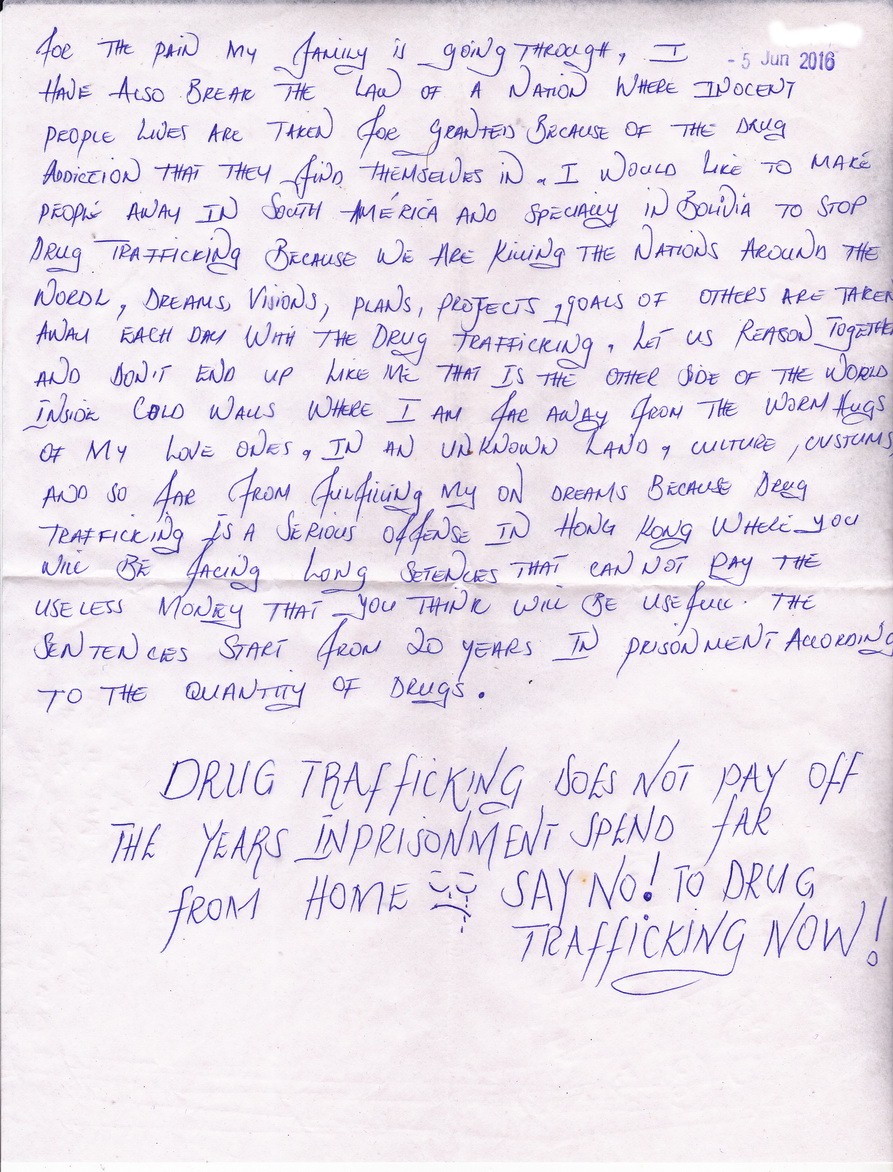 FOR THE PAIN MY FAMILY IS GOING THROUGH, I
- 5 Jun 2016
HAVE ALSO BREAK THE LAW OF A NATION WHERE INOCENT
PEOPLE LIVES ARE TAKEN FOR GRANTED BECAUSE OF THE DRUG
ADDICTION THAT THEY FIND THEMSELVES IN. I WOULD LIKE TO MAKE
PEOPLE AWAY IN SOUTH AMÉRICA AND SPECIALLY IN BOLIVIA TO STOP
DRUG TRAFFICKING BECAUSE WE ARE KILLING THE NATIONS AROUND THE
WORDL, DREAMS, VISIONS, PLANS, PROJECTS, GOALS OF OTHERS ARE TAKEN
AWAY EACH DAY WITH THE DRUG TRAFFICKING. LET US REASON TOGETHE
AND DON'T END UP LIKE ME THAT IS THE OTHER SIDE OF THE WORLD
INSIDE COLD WALLS WHERE I AM FAR AWAY FROM THE WORM HUGS
OF MY LOVE ONES, IN AN UNKNOWN LAND, CULTURE, CUSTUMS,
AND SO FAR FROM FULFILLING MY ON DREAMS BECAUSE DRUG
TRAFFICKING IS A SERIOUS OFFENSE IN HONG KONG WHERE YOU
WILL BE FACING LONG SETENCES THAT CAN NOT PAY THE
USELESS MONEY THAT YOU THINK WILL BE USEFULL. THE
SENTENCES START FROM 20 YEARS IN PRISONMENT ACCORDING
TO THE QUANTITY OF DRUGS.
DRUG TRAFFICKING DOES NOT PAY OFF
THE YEARS INPRISONMENT SPEND FAR
FROM HOME SAY NO! TO DRUG
TRAFFICKING NOW!